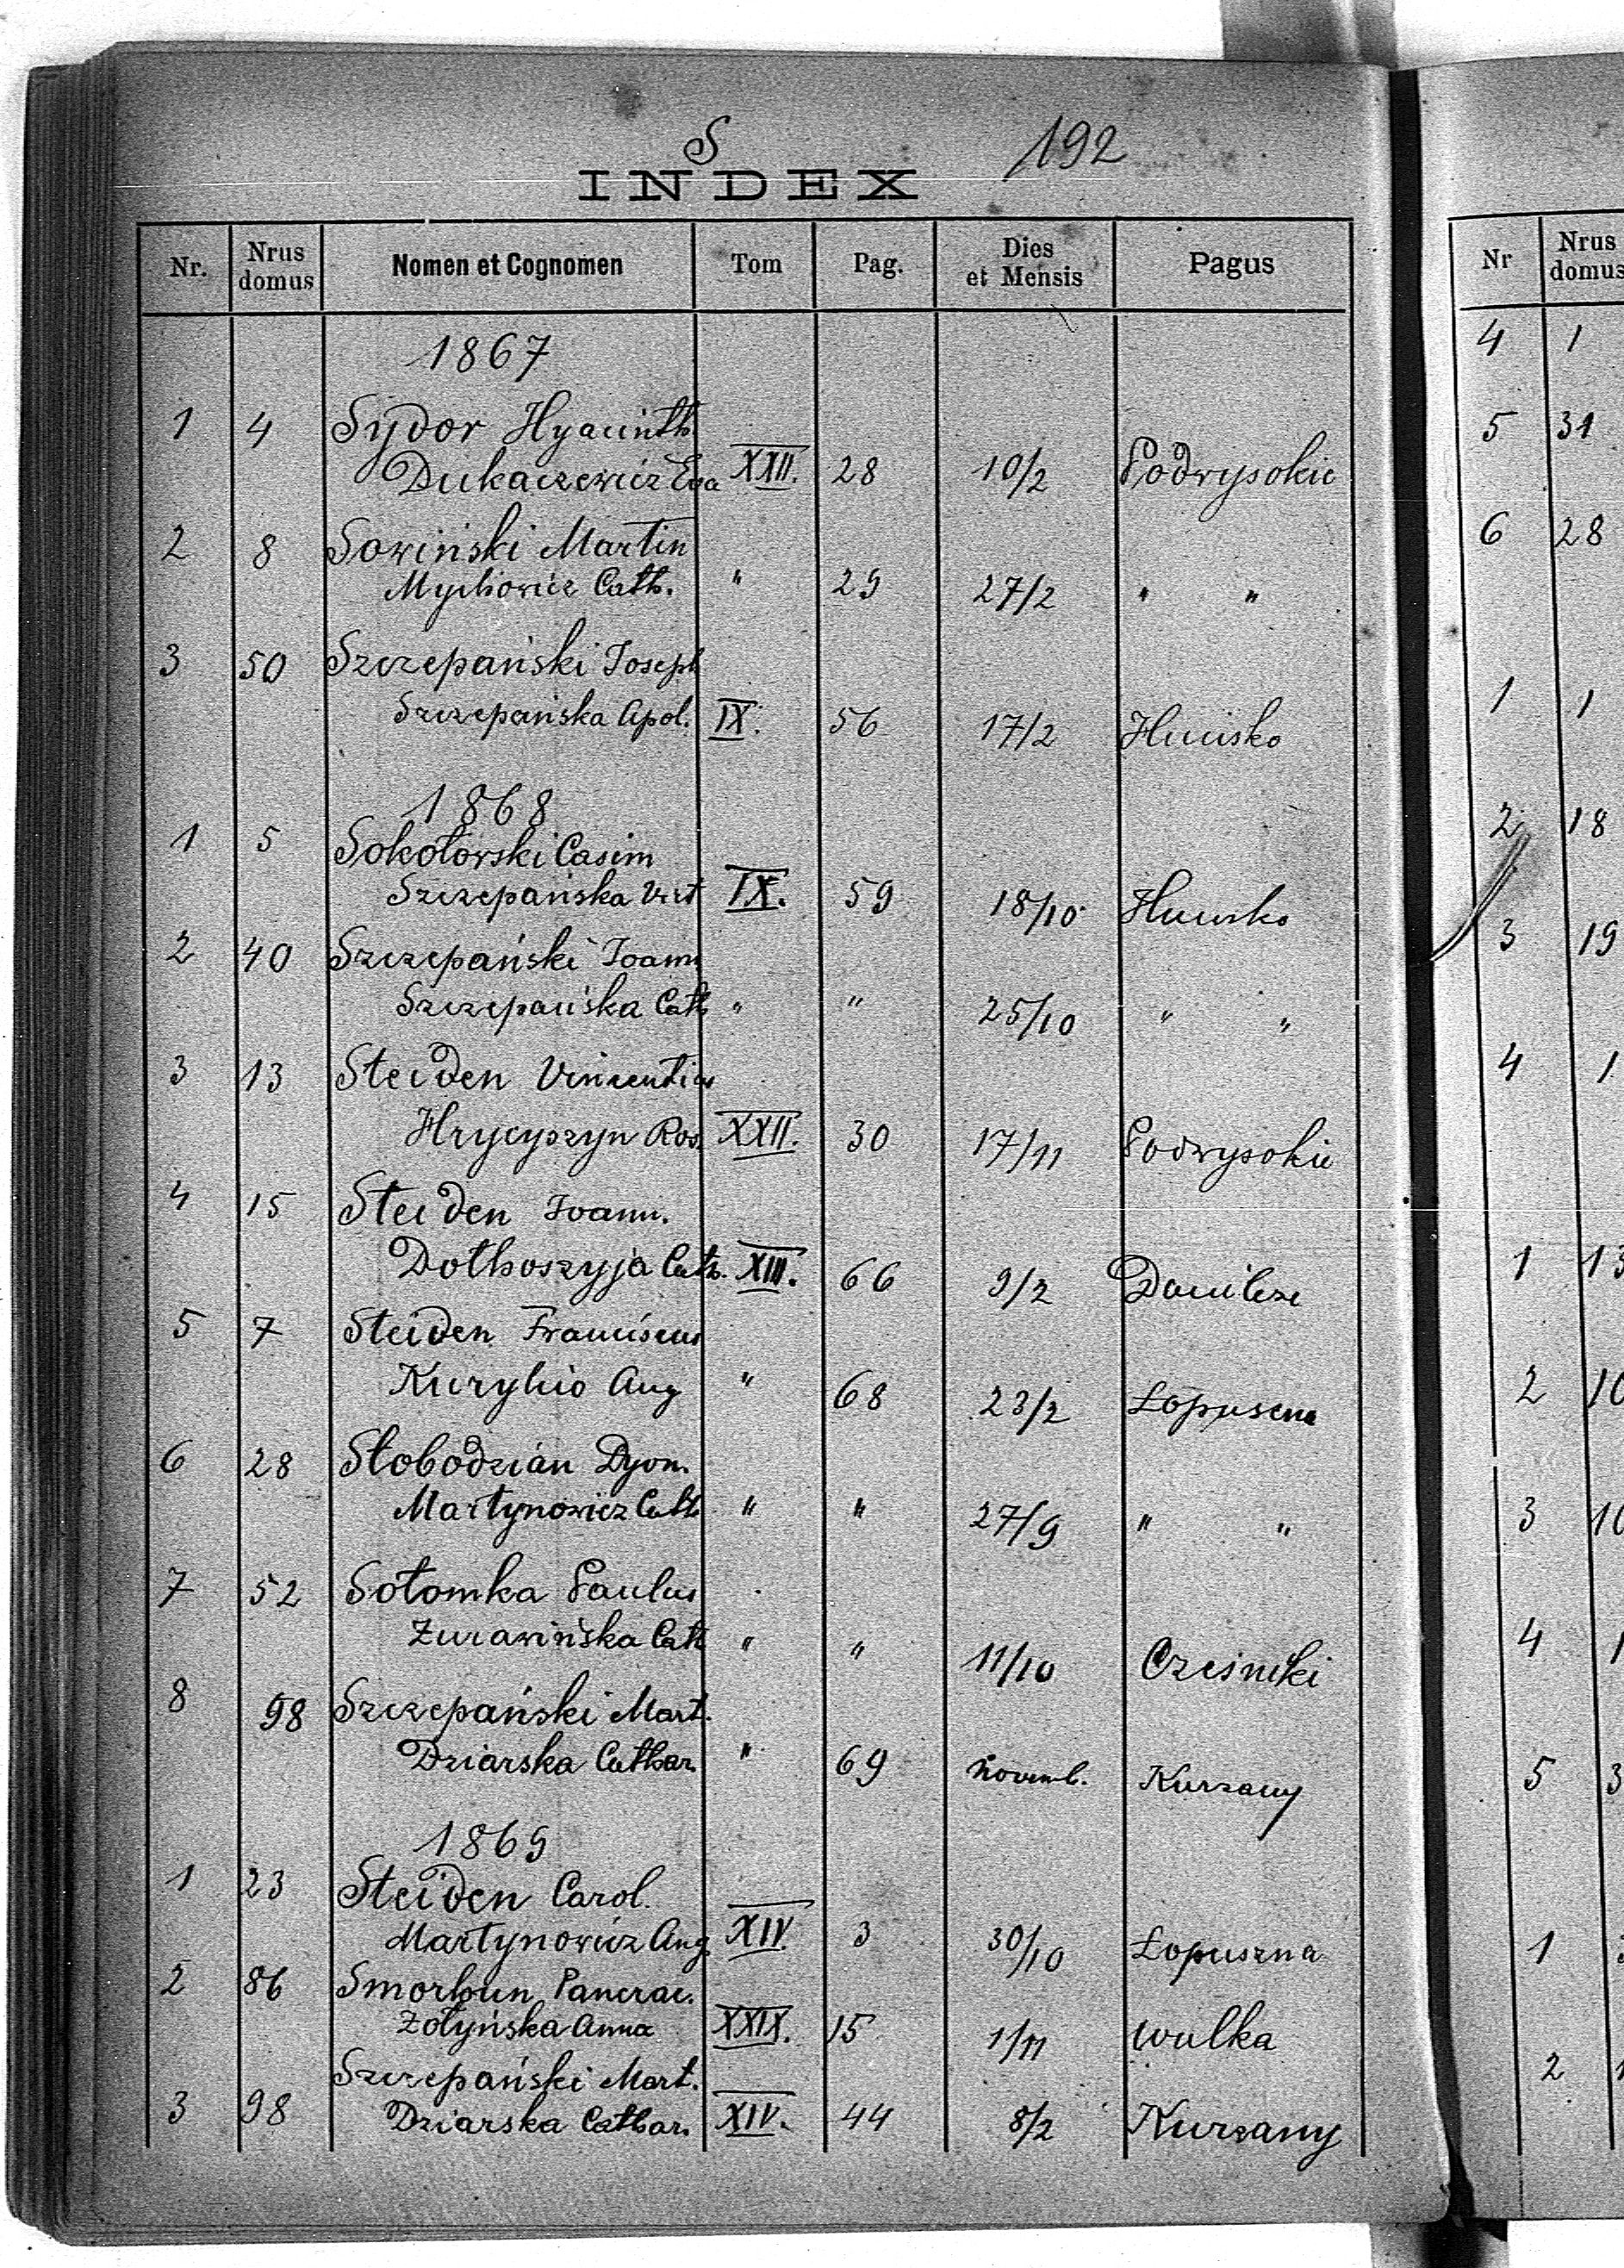 S 192
INDEX
Nr. Nrus domus Nomen et Cognomen Tom Pag. Dies et Mensis Pagus
1867
1 4 Sydor Hyacinth.
Dukaczewicz Eva XXII. 28 10/2 Podwysokie
2 8 Sowiński Martin
Cath. " 29 27/2 " "
3 50 Szczepański Joseph
Szczepańska Apol. IX. 56 17/2 Hucisko
1868
1 5 Sokołowski Casim
Szczepańska Vict IX. 59 18/10 Hucisko
2 40 Szczepański Joann
Szczepańska Cath " " 25/10 " "
3 13 Steiden Vincentius
Hrycyszyn Ros. XXII. 30 17/11 Podwysokie
4 15 Steiden Joann.
Dołhoszyja Cath. XIII. 66 9/2 Danilcze
5 7 Steiden Franciscus
Ang " 68 23/2 Łopuszna
6 28 Słobodzian Dyon.
Martynowicz Cath " " 27/9 " "
7 52 Sołomka Paulus
Żurawińska Cath " " 11/10 Cześniki
8 98 Szczepański Mart.
Dziarska Cathar. " 69 Novemb. Kurzany
1869
1 23 Steiden Carol.
Martynowicz Ang XIV. 3 30/10 Łopuszna
2 86 Smorhun Pancrac.
Żołyńska Anna XXIX. 15 1/11 Wulka
Szczepański Mart.
3 98 Dziarska Cathar. XIV. 44 8/2 Kurzany
Nr Nrus domus
4 1
5 31
6 28
1 1
2 18
3 19
4 1
1 13
2 10
3 10
4 1
5 3
1
2